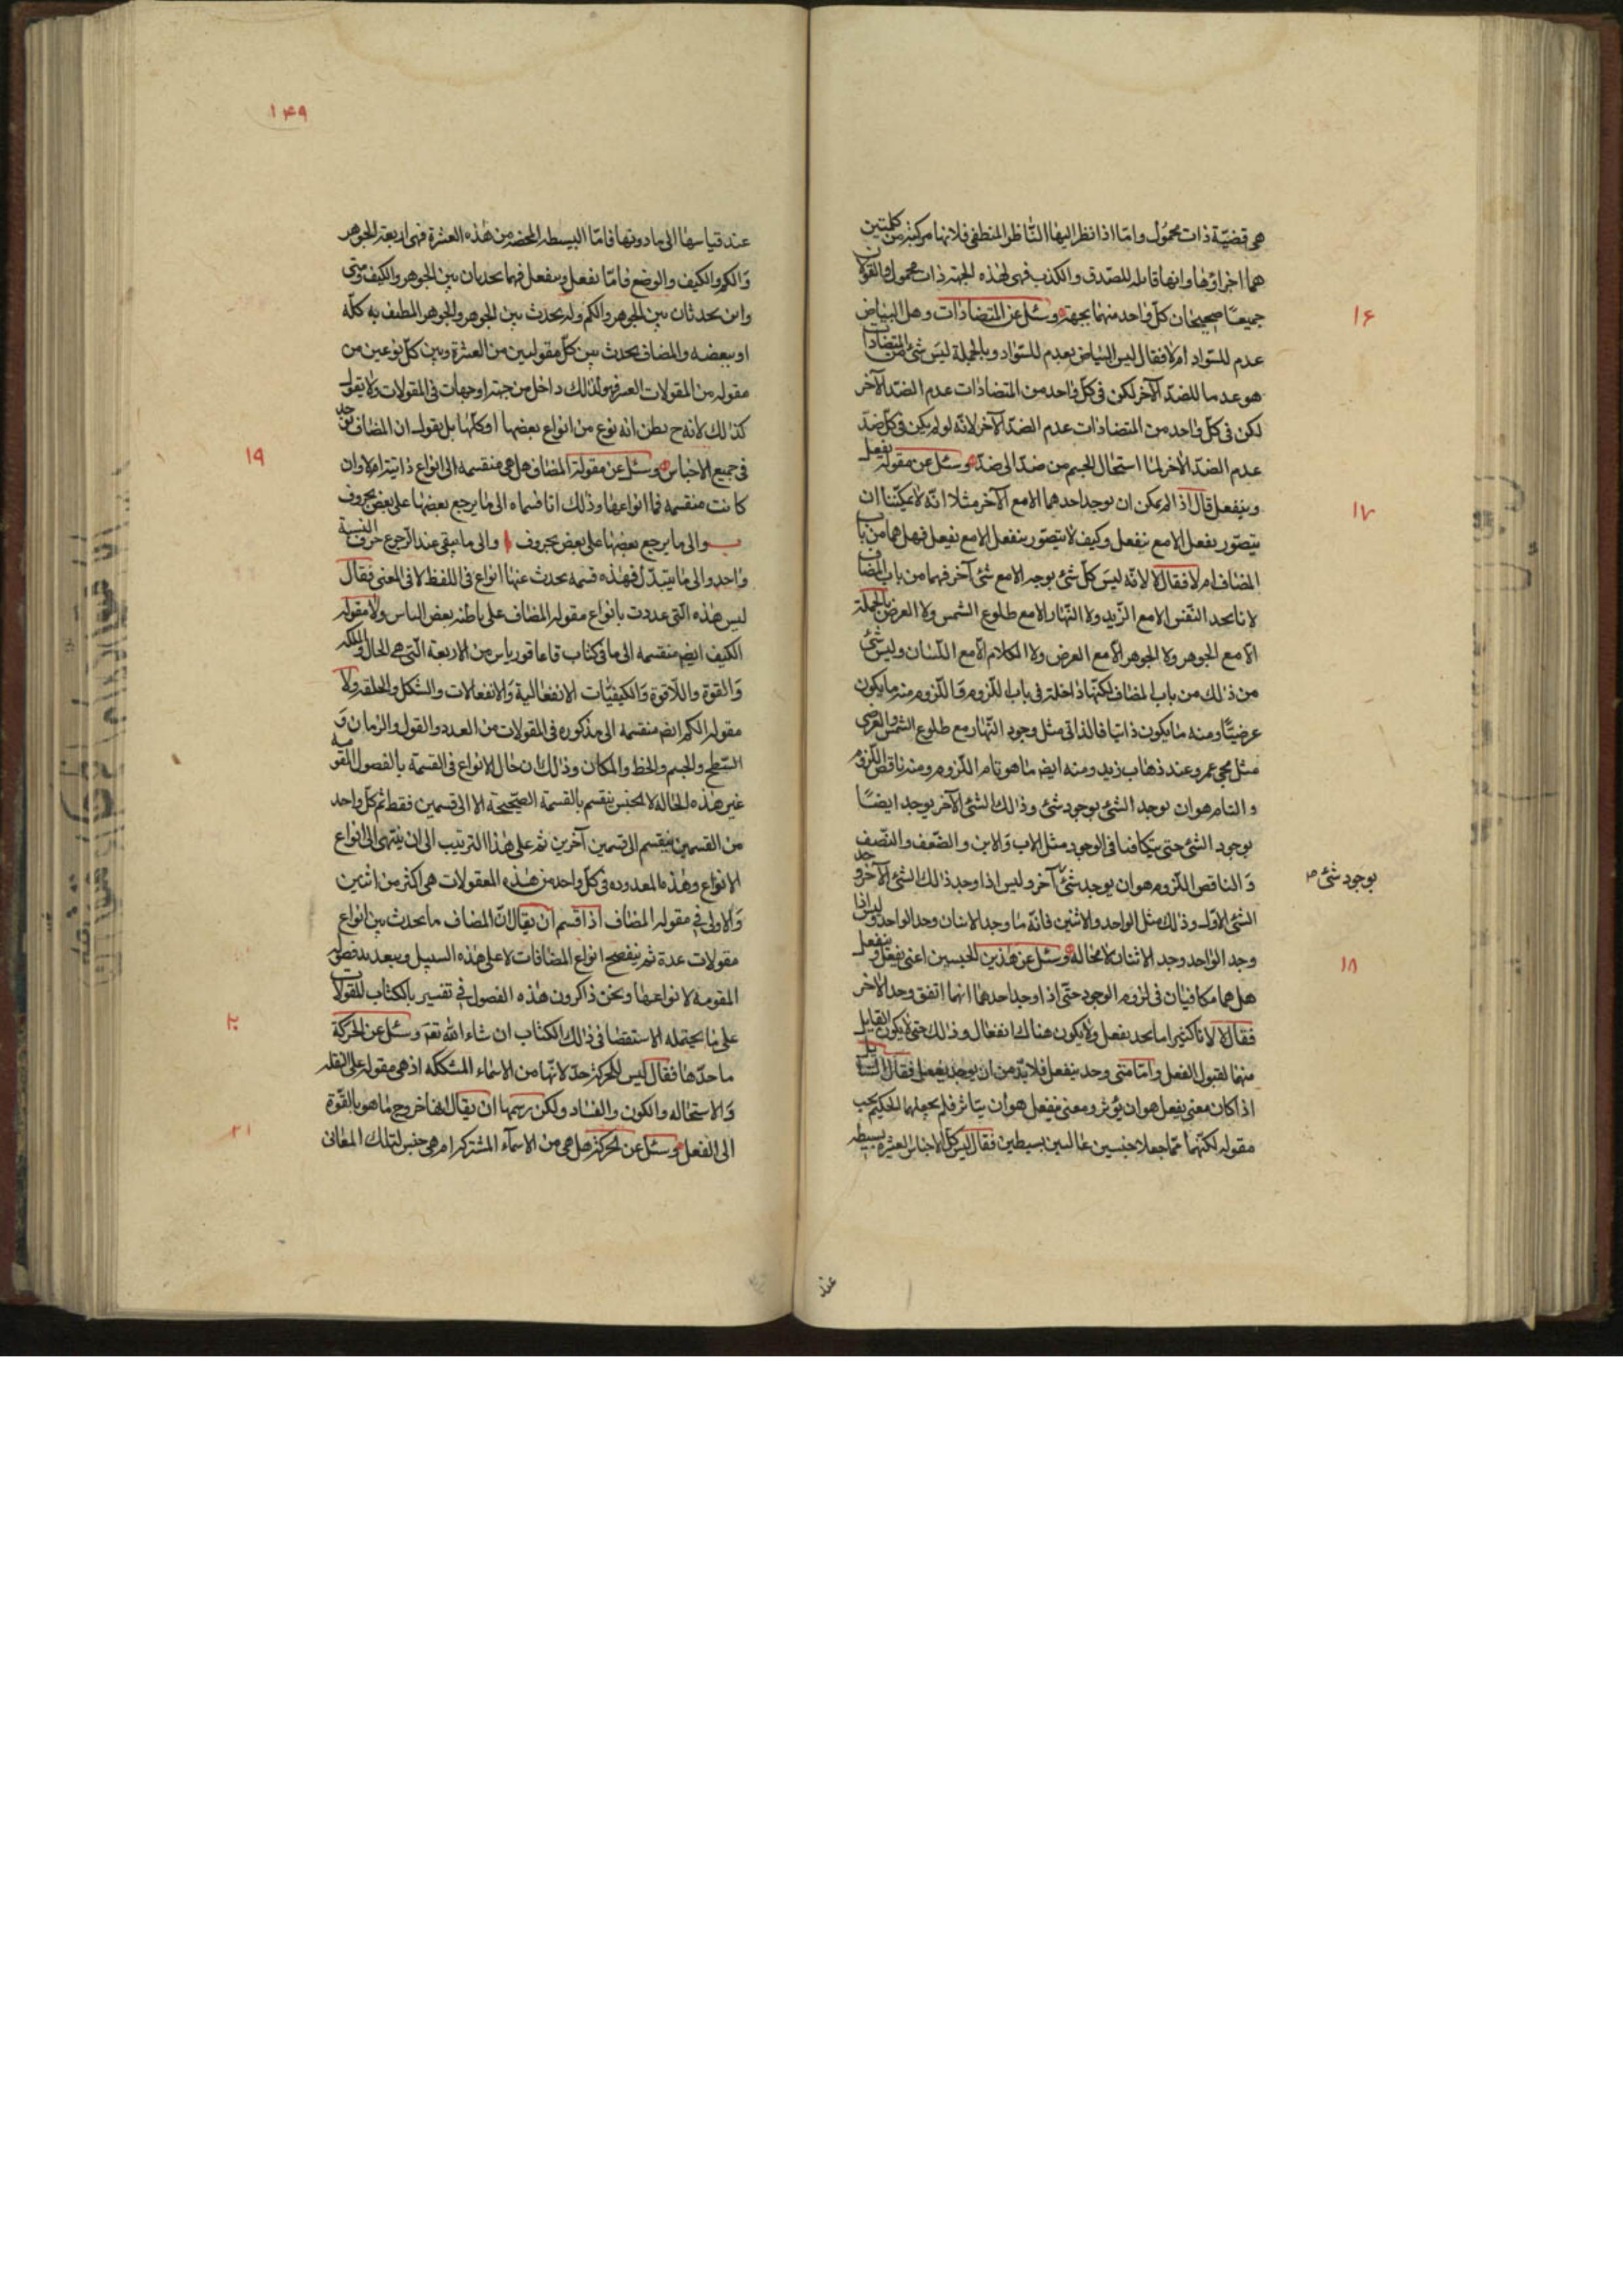 هى قضيّة ذات محمول وامّا اذا نظر اليها الناظر المنطقى فلانها مركبة من كلمتين
هما اجزاؤها وانها قابلة للصّدق والكذب فهى لهذه الجهة ذات محمول والقولان
جميعًا صحيحان كلّ واحد منهما بجهة وسئل عن المتضادّات وهل البياض
۱۶
عدم للسّواد ام لا فقال ليس البياض بعدم للسّواد وبالجملة ليس شئ من المتضادات
هو عدما للضدّ الآخر لكن فى كلّ واحد من المتضادّات عدم الضدّ الآخر
لكن فى كلّ واحد من المتضادّات عدم الضدّ الآخر لانّه لو لم يكن فى كلّ ضدّ
عدم الضدّ الآخر لما استحال الجسم من ضدّ الى ضدّ وسئل عن مقولة يفعل
وينفعل قال اذا لم يمكن ان يوجد احدهما الا مع الآخر مثلا انّه لا يمكننا ان
۱۷
يتصوّر يفعل الا مع ينفعل وكيف لا يتصوّر ينفعل الا مع يفعل فهل هما من باب
المضاف ام لا فقال لا لانّه ليس كلّ شئ يوجد الا مع شئ آخر فهما من باب المضاف
لانا نجد التّنفّس الا مع الرّيه ولا النّهار الا مع طلوع الشمس ولا العرض بالجملة
الّا مع الجوهر ولا الجوهر الّا مع العرض ولا الكلام الّا مع اللّسان وليس شئ
من ذلك من باب المضاف لكنّها داخلة فى باب اللّزوم واللّزوم منه ما يكون
عرضيّا ومنه ما يكون ذاتيّا فالذاتى مثل وجود النّهار مع طلوع الشمس والعرضى
مثل مجئ عمرو عند ذهاب زيد ومنه ايضا ما هو تام اللّزوم ومنه ناقص اللّزوم
والتام هو ان يوجد الشئ بوجود شئ وذلك الشئ الآخر يوجد ايضًا
بوجود الشئ حتى يتكافيا فى الوجود مثل الاب والابن والضّعف والنّصف
والناقص اللّزوم هو ان يوجد شئ آخر وليس اذا وجد ذلك الشئ الآخر وجد
بوجود شئ صح
الشئ الاوّل وذلك مثل الواحد والاثنين فانّه ما وجد الاثنان وجد الواحد وليس اذا
وجد الواحد وجد الاثنان لا محالة وسئل عن هذين الجنسين اعنى يفعل وينفعل
۱۸
هل هما مكافيان فى لزوم الوجود حتّى اذا وجد احدهما ايهما اتفق وجد الآخر
فقال لا لانا كثيرا ما نجد يفعل ولا يكون هناك انفعال وذلك حتى لا يكون القابل
متهيا لقبول الفعل وامّا متى وجد ينفعل فلا بدّ من ان يوجد يفعل فقال السائل
اذا كان معنى يفعل هو ان يؤثر ومعنى ينفعل هو ان يتاثر فلم يجعلهما الحكيم تحت
مقولة لكنّهما ممّا جعلا جنسين عاليين بسيطين فقال ليس كلّ الاجناس العشرة بسيطة
عند
۱۴۹
عند قياسها الى ما دونها فامّا البسيطة المحضة من هذه العشرة فهى اربعة الجوهر
والكم والكيف والوضع فامّا يفعل وينفعل فهما يحدثان بين الجوهر والكيف ومتى
واين يحدثان بين الجوهر والكم وله يحدث بين الجوهر والجوهر المطيف به كلّه
او ببعضه والمضاف يحدث بين كلّ مقولتين من العشرة وبين كلّ نوعين من
مقولة من المقولات العشر فهو لذلك داخل من جهة او جهات فى المقولات ولا يقول
كذلك لانه ح يظن انه نوع من انواع بعضها او كلّها بل يقول ان المضاف يوجد
فى جميع الاجناس وسئل عن مقولة المضاف هل هى منقسمة الى انواع ذاتية ام لا وان
۱۹
كانت منقسمة فما انواعها وذلك انا قسماه الى ما يرجع بعضها على بعض بحروف
والى ما يرجع بعضها على بعض بحروف والى ما يبقى عند الرّجوع حرف النسبة
واحد والى ما يتبدّل فهذه قسمة يحدث عنها انواع فى اللفظ لا فى المعنى فقال
ليس هذه الّتى عددت بانواع مقولة المضاف على ما ظنه بعض الناس ولا مقولة
الكيف ايضا منقسمة الى ما فى كتاب قاطاغورياس من الاربعة الّتى هى الحال والملكة
والقوة واللّاقوة والكيفيّات الانفعالية والانفعالات والشّكل والخلقة ولا
مقولة الكم ايضا منقسمة الى مذكورة فى المقولات من العدد والقول والزمان و
السّطح والجسم والخط والمكان وذلك ان حال الانواع فى القسمة بالفصول المقومة
غير هذه الحالة لا الجنس ينقسم بالقسمة الصّحيحة الا الى قسمين فقط ثم كلّ واحد
من القسمين ينقسم الى قسمين آخرين ثم على هذا الترتيب الى ان ينتهى الى انواع
الانواع وهذه المعدودة فى كلّ واحد من هذه المعقولات هى اكثر من اثنين
والاولى فى مقولة المضاف اذا قسم ان يقال انّ المضاف ما يحدث بين انواع
مقولات عدة ثم ينفصح انواع المضافات لا على هذه السبيل وببعد بفصوله
المقومة لانواعها ونحن ذاكرون هذه الفصول فى تفسير ناكتاب المقولات
على ما يحتمله الاستقصا فى ذلك الكتاب ان شاء الله تعم وسئل عن الحركة
۲۰
ما حدّها فقال ليس للحركة حدّ لانّها من الاسماء المشككه اذ هى مقولة على النقلة
والاستحالة والكون والفساد ولكن رسمها ان يقال انها خروج ما هو بالقّوة
الى الفعل وسئل عن الحركة هل هى من الاسمآء المشتركة ام هى جنس لتلك المعانى
۲۱